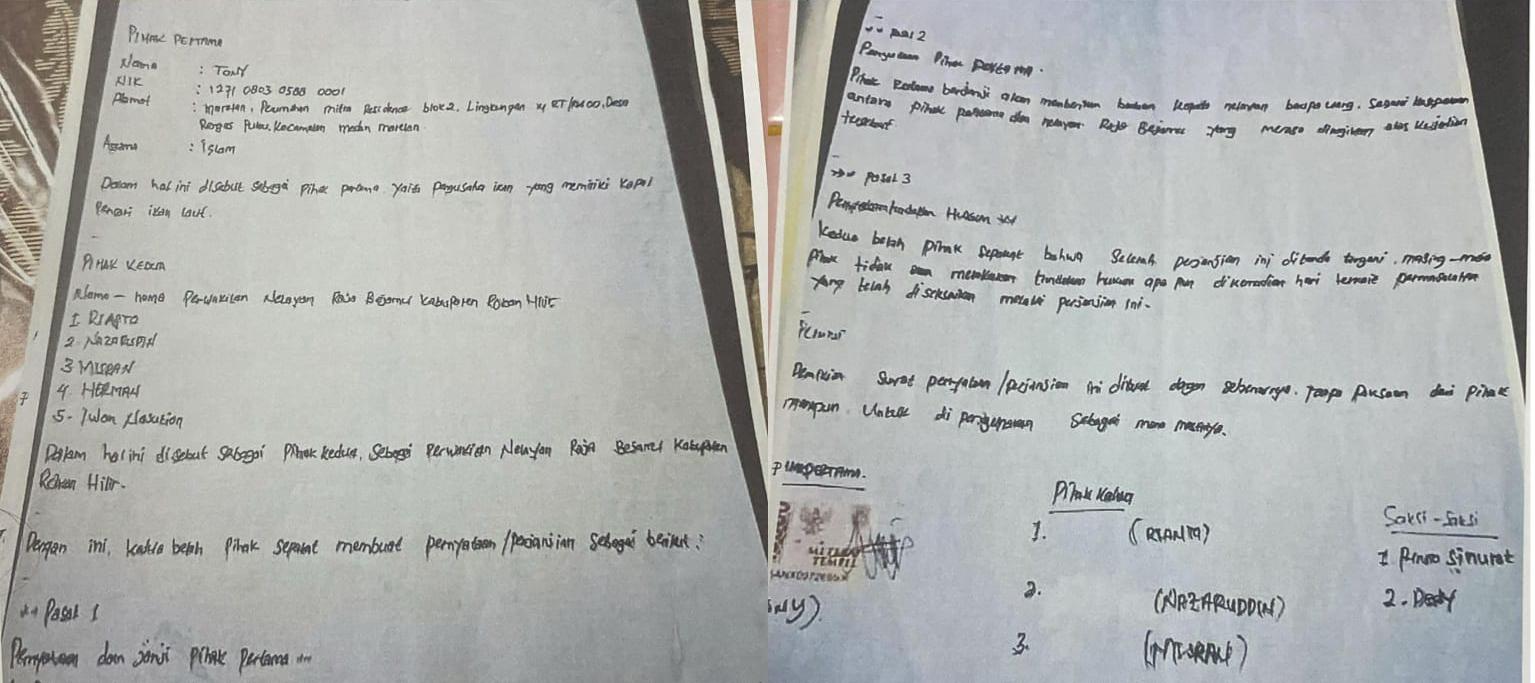 PIHAK PERTAMA
Nama : TONY
NIK : 1271 0803 0588 0001
Alamat : marelan, Perumahan mitra Residence blok 2. Lingkungan XI RT/RW 00, Desa
Rengas Pulau, Kecamatan medan marelan.
Agama : Islam
Dalam hal ini disebut sebagai Pihak pertama yaitu pengusaha ikan yang memiliki Kapal
Pencari ikan laut.
PIHAK KEDUA
Nama - nama Perwakilan Nelayan Raja Bejamu Kabupaten Rokan Hilir
1. RIANTO
2. NAZARUDIN
3 MISRAN
4. HERMAN
5. Iwan Nasution
Dalam hal ini disebut sebagai Pihak kedua, Sebagai Perwakilan Nelayan Raja Besamu Kabupaten
Rokan Hilir.
Dengan ini, kedua belah Pihak sepakat membuat pernyataan/perjanjian Sebagai berikut :
** Pasal 1
Pernyataan dan janji Pihak Pertama **
** Pasal 2
Pernyataan Pihak Pertama.
Pihak Pertama berjanji akan memberikan bantuan kepada nelayan berupa uang. Sebagai
antara Pihak pertama dan nelayan Raja Bejamu yang merasa dirugikan atas kejadian
tersebut
** Pasal 3
Hukum **
Kedua belah Pihak Sepakat bahwa Setelah perjanjian ini ditanda tangani, masing-masi
Pihak tidak akan melakukan tindakan hukum apa pun dikemudian hari terkait permasalahan
yang telah diselesaikan melalui perjanjian ini.
Demikian Surat pernyataan/perjanjian ini dibuat dengan sebenarnya. Tanpa Paksaan dari Pihak
manapun. Untuk di pergunakan Sebagai mana mestinya.
PIHAK PERTAMA.
Pihak Kedua
Saksi-Saksi
1. (RIANTO)
1 Sinurat
METERAI
TEMPEL
2. (NAZARUDDIN)
2. Dedy
NY)
3. (MISRAN)